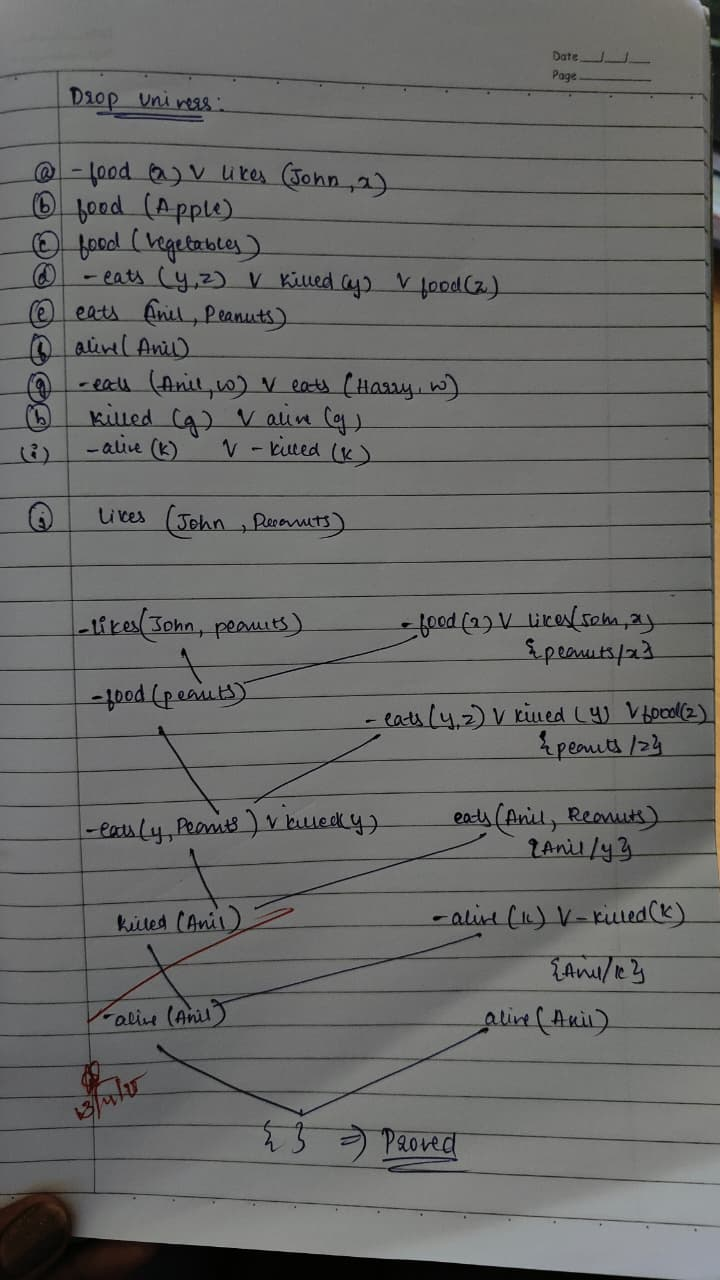 Date __/__/__
Page
Drop univers:
(a) -food (x) V likes (John, x)
(b) food (Apple)
(c) food (vegetables)
(d) -eats (y,z) V killed (y) V food (z)
(e) eats (Anil, Peanuts)
(f) alive (Anil)
(g) -eats (Anil, w) V eats (Harry, w)
(h) killed (g) V alive (g)
(i) -alive (k) V -killed (k)
(j) likes (John, Peanuts)
-likes (John, peanuts) -food (x) V likes (John, x)
{peanuts/x}
-food (peanuts)
-eats (y,z) V killed (y) V food(z)
{peanuts/z}
-eats (y, Peanuts) V killed(y) eats (Anil, Peanuts)
{Anil/y}
killed (Anil) -alive (k) V -killed (k)
{Anil/k}
-alive (Anil) alive (Anil)
{ } => Proved